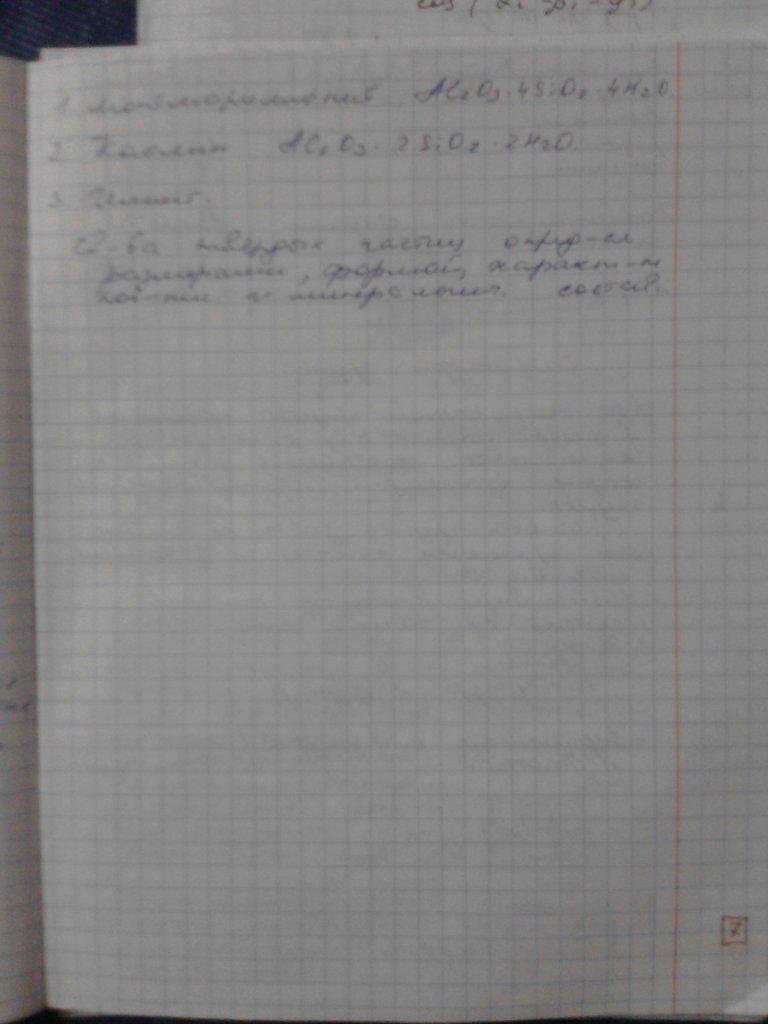 cos (αi - βi - φi)
1. Монтморилонит Al2O3·4SiO2·4H2O
2. Каолин Al2O3·2SiO2·2H2O.
3.
Св-ва твердых частиц опред-ся
размерами, формой, характ-м
пов-ти и минералогич. состав.
7